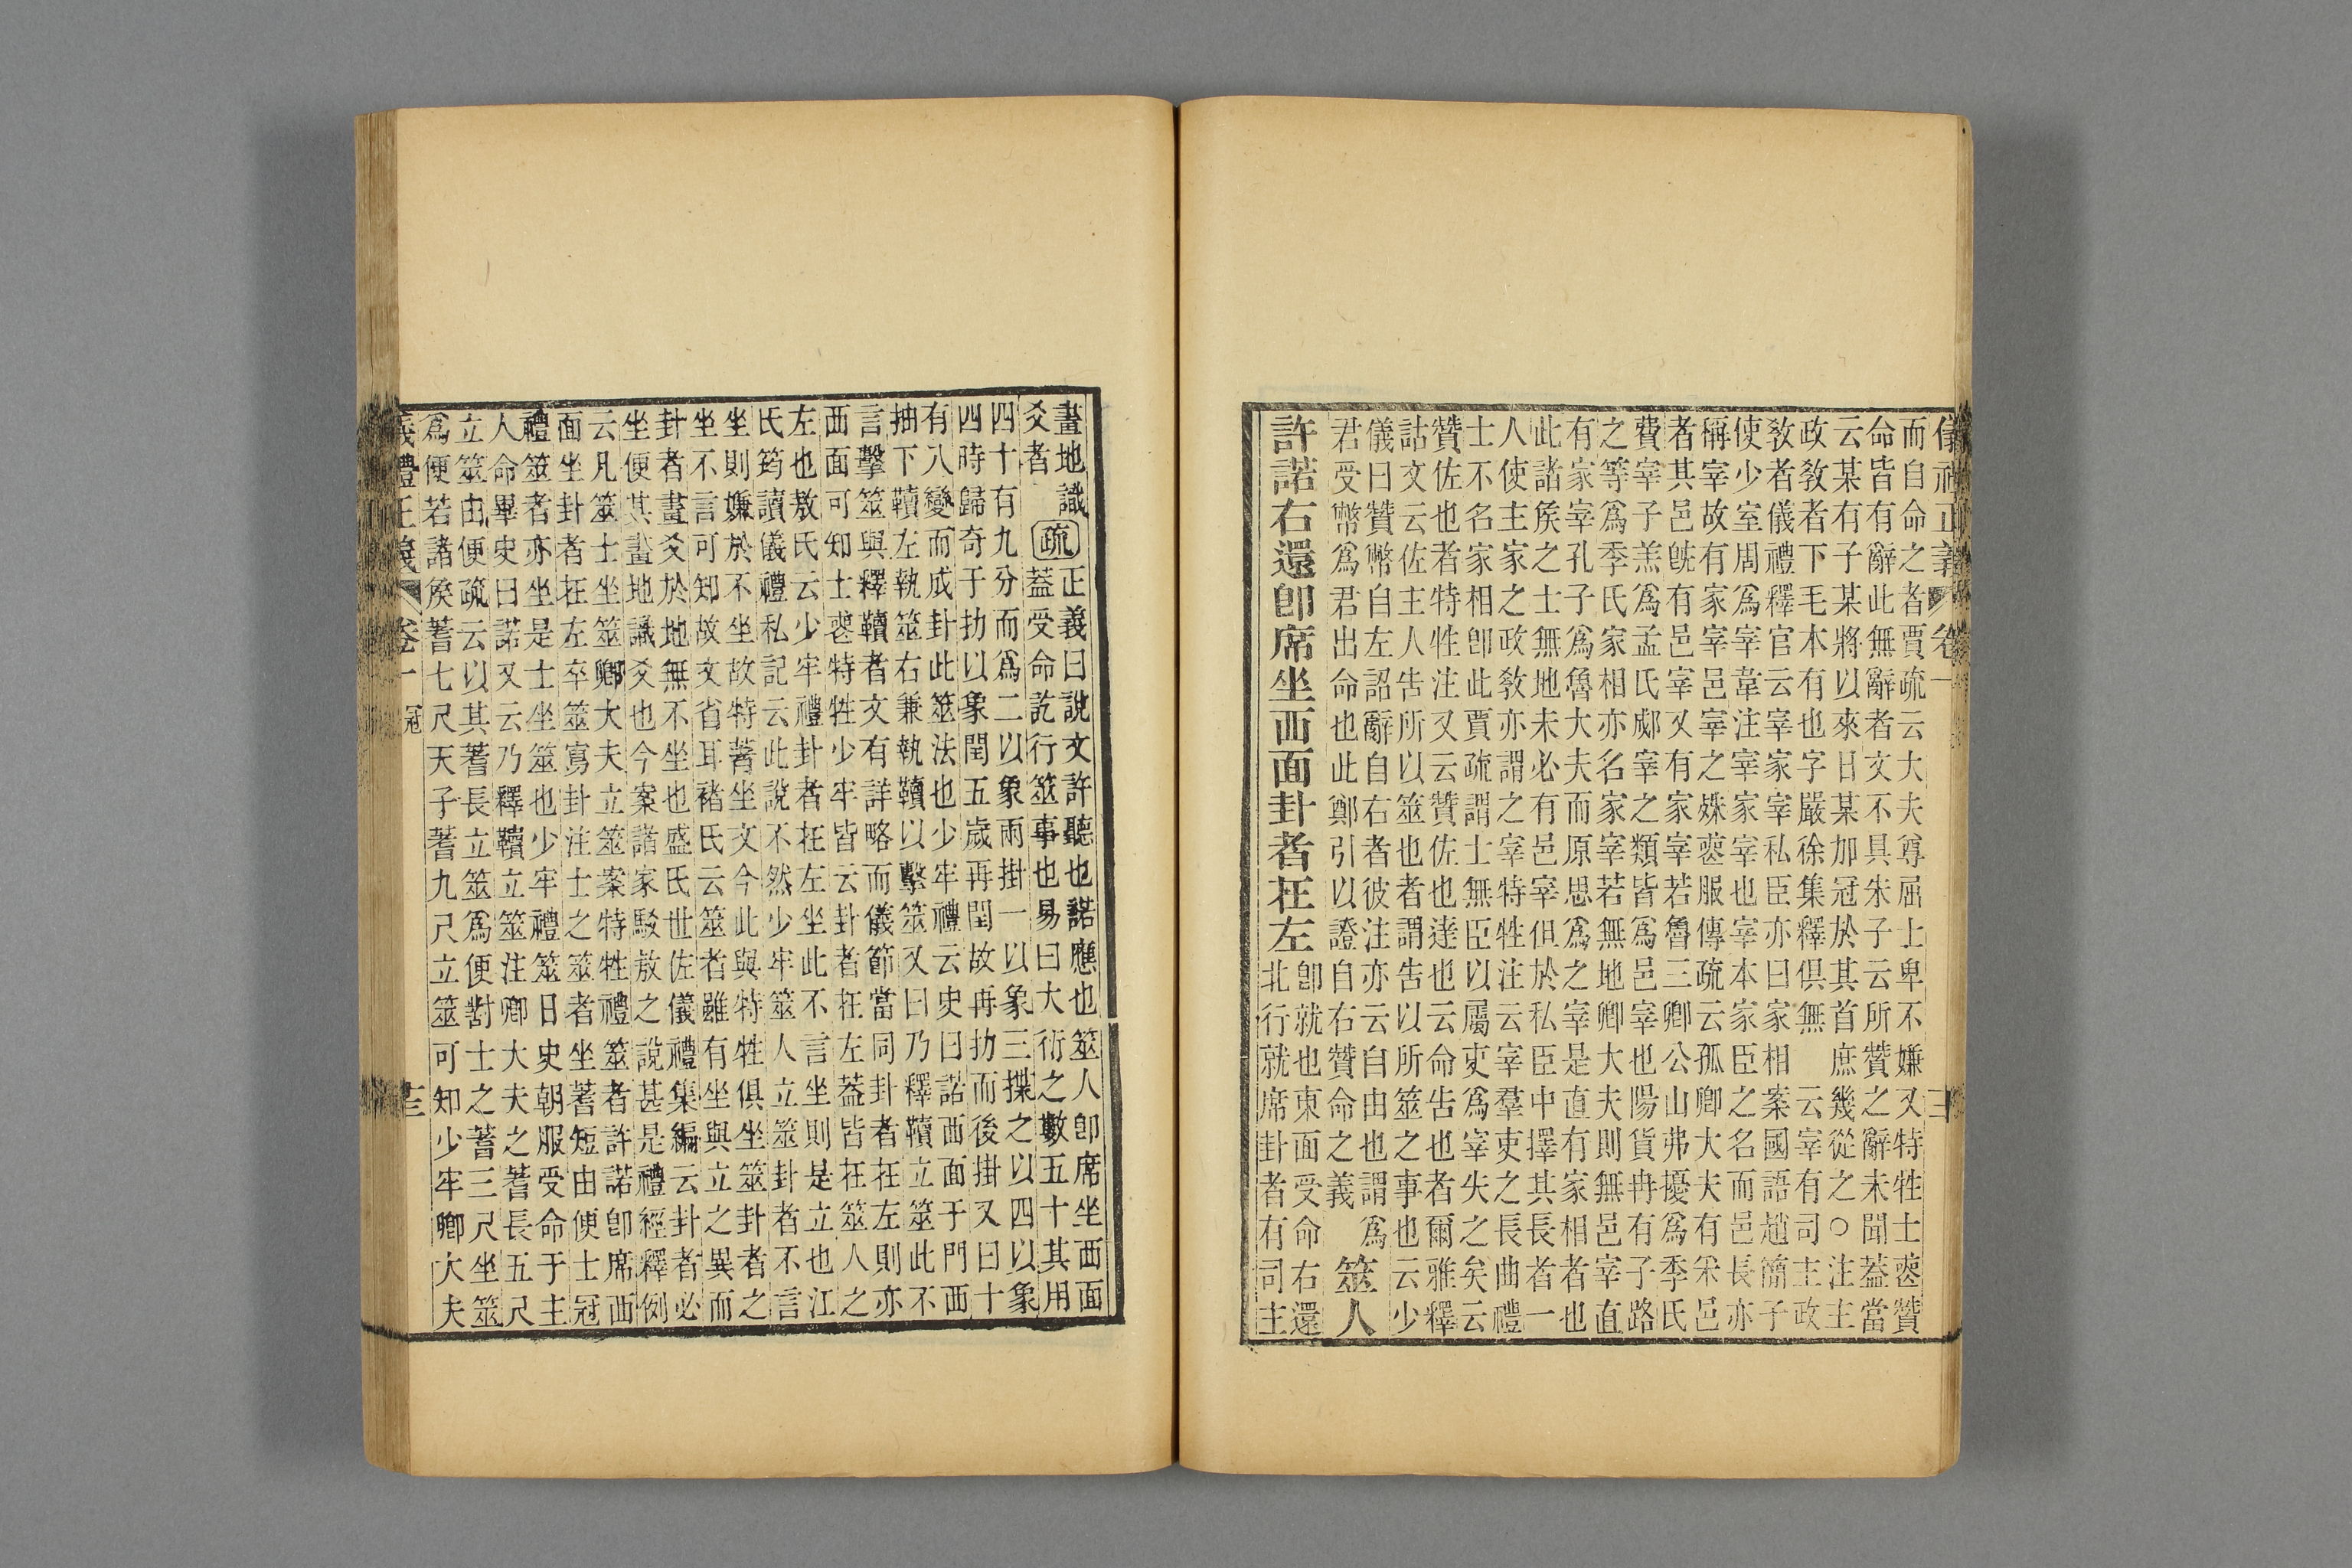 儀禮正義 卷一 三
而自命之者賈疏云大夫尊屈士卑不嫌又特牲士䘮贊
命皆有辭此無辭者文不具朱子云所贊之辭未聞蓋當
云某有子某將以來日某加冠於其首庶幾從之○注主
政敎者下毛本有也字嚴徐集釋俱無 云宰有司主政
敎者儀禮釋官云宰家宰私臣亦曰家相案國語趙簡子
使少室周爲宰韋注宰家宰也宰本家臣之名而邑長亦
稱宰故有家宰邑宰之殊䘮服傳疏云孤卿大夫有宋邑
者其邑旣有邑宰又有家宰若魯三卿公山弗擾爲季氏
費宰子羔爲孟氏郕宰之類皆爲邑宰也陽貨冉有子路
之等爲季氏家相亦名家宰若無地卿大夫則無邑宰直
有家宰孔子爲魯大夫而原思爲之宰是直有家相者也
此諸矦之士無地未必有邑宰但於私臣中擇其長者一
人使主家之政敎亦謂之宰特牲注云宰羣吏之長曲禮
士不名家相卽此賈疏謂士無臣以屬吏爲宰失之矣云
贊佐也者特牲注又云贊佐也達也云命告也者爾雅釋
詁文云佐主人告所以筮也者謂告以所筮之事也云少
儀曰贊幣自左詔辭自右者彼注亦云自由也謂爲
君受幣爲君出命也此鄭引以證自右贊命之義
筮人
許諾右還卽席坐西面卦者在左
卽就也東面受命右還
北行就席卦者有司主
畫地識
爻者
疏
正義曰說文許聽也諾應也筮人卽席坐西面
蓋受命訖行筮事也易曰大衍之數五十其用
四十有九分而爲二以象兩掛一以象三揲之以四以象
四時歸奇于扐以象閏五歲再閏故再扐而後掛又曰十
有八變而成卦此筮法也少牢禮云史曰諾西面于門西
抽下韇左執筮右兼執韇以擊筮又曰乃釋韇立筮此不
言擊筮與釋韇者文有詳略而儀節當同卦者在左則亦
西面可知士䘮特牲少牢皆云卦者在左蓋皆在筮人之
左也敖氏云少牢禮卦者在左坐此不言坐則是立也江
氏筠讀儀禮私記云此說不然少牢筮人立筮卦者不言
坐則嫌於不坐故特著坐文今此與特牲俱坐筮卦者之
坐不言可知故文省耳褚氏云筮者雖有坐與立之異而
卦者畫爻於地無不坐也盛氏世佐儀禮集編云卦者必
坐便其畫地識爻也今案諸家駁敖之說甚是禮經釋例
云凡筮士坐筮卿大夫立筮案特牲禮筮者許諾卽席西
面坐卦者在左卒筮寫卦注士之筮者坐蓍短由便士冠
禮筮者亦坐是士坐筮也少牢禮筮日史朝服受命于主
人命畢史曰諾又云乃釋韇立筮注卿大夫之蓍長五尺
立筮由便疏云以其蓍長立筮爲便對士之蓍三尺坐筮
爲便若諸矦蓍七尺天子蓍九尺立筮可知少牢卿大夫
儀禮正義 卷一 冠